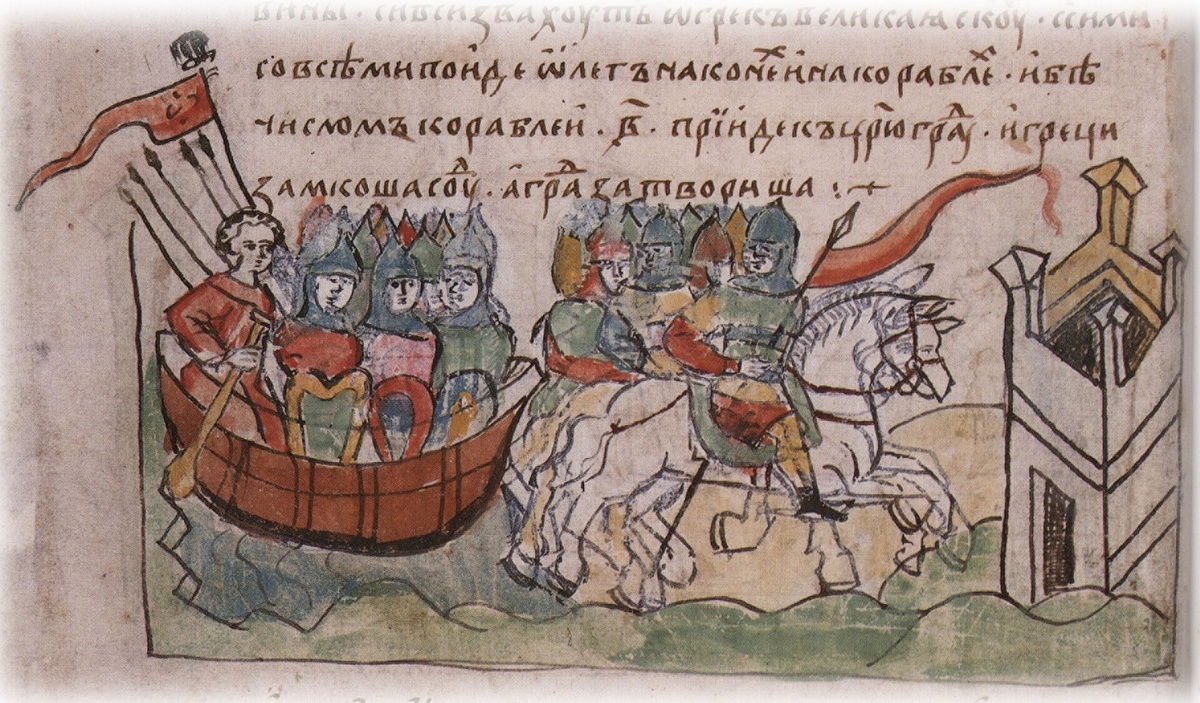 вины · си вси звахоуть ѿ грекъ великаꙗ скоуⷴ · с сими
со всѣми поиде ѡлегъ на конеⷯ и на кораблеⷯ · и бѣ
числомъ кораблеи · в҃ · прїиде къ цр҃югр҃аⷣ · и греци
замкоша соуⷣ · а граⷣ затвориша :~